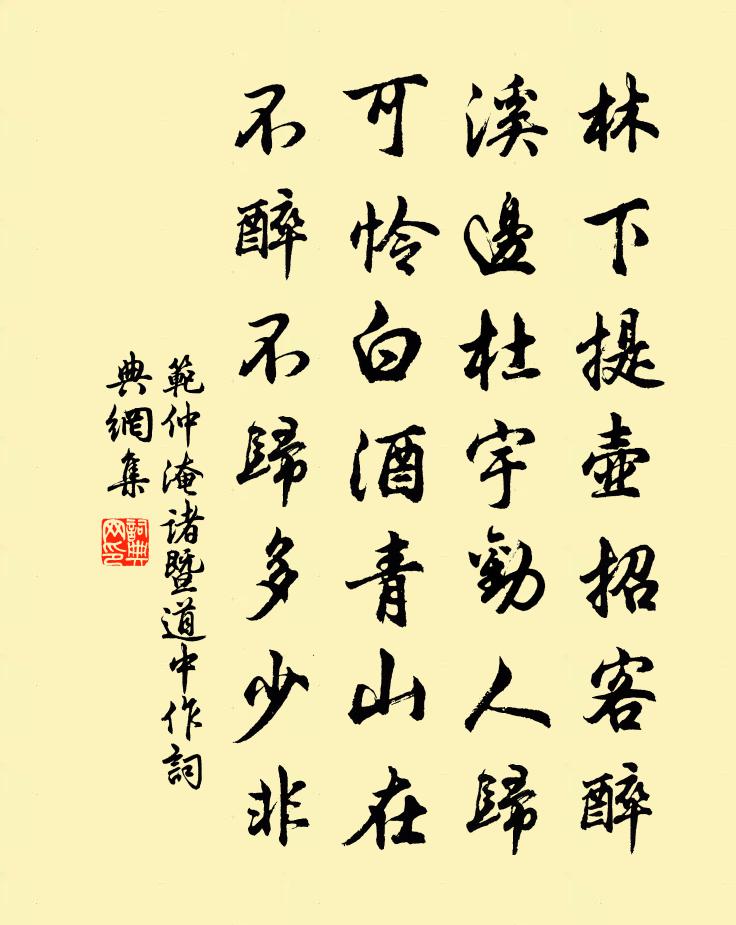 林下提壺招客醉
溪邊杜宇勸人歸
可怜白酒青山在
不醉不歸多少非
範仲淹諸暨道中作詞
典網集
詞典
网印